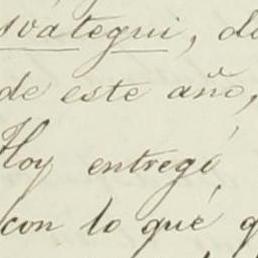 svategui, de
de este año,
Hoy entregé
con lo qué q